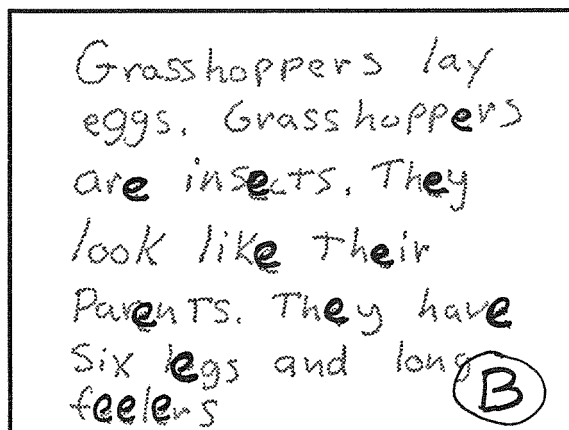 Grasshoppers lay
eggs. Grasshoppers
are insects. They
look like Their
ParenTs. They have
Six legs and long
feelers
B